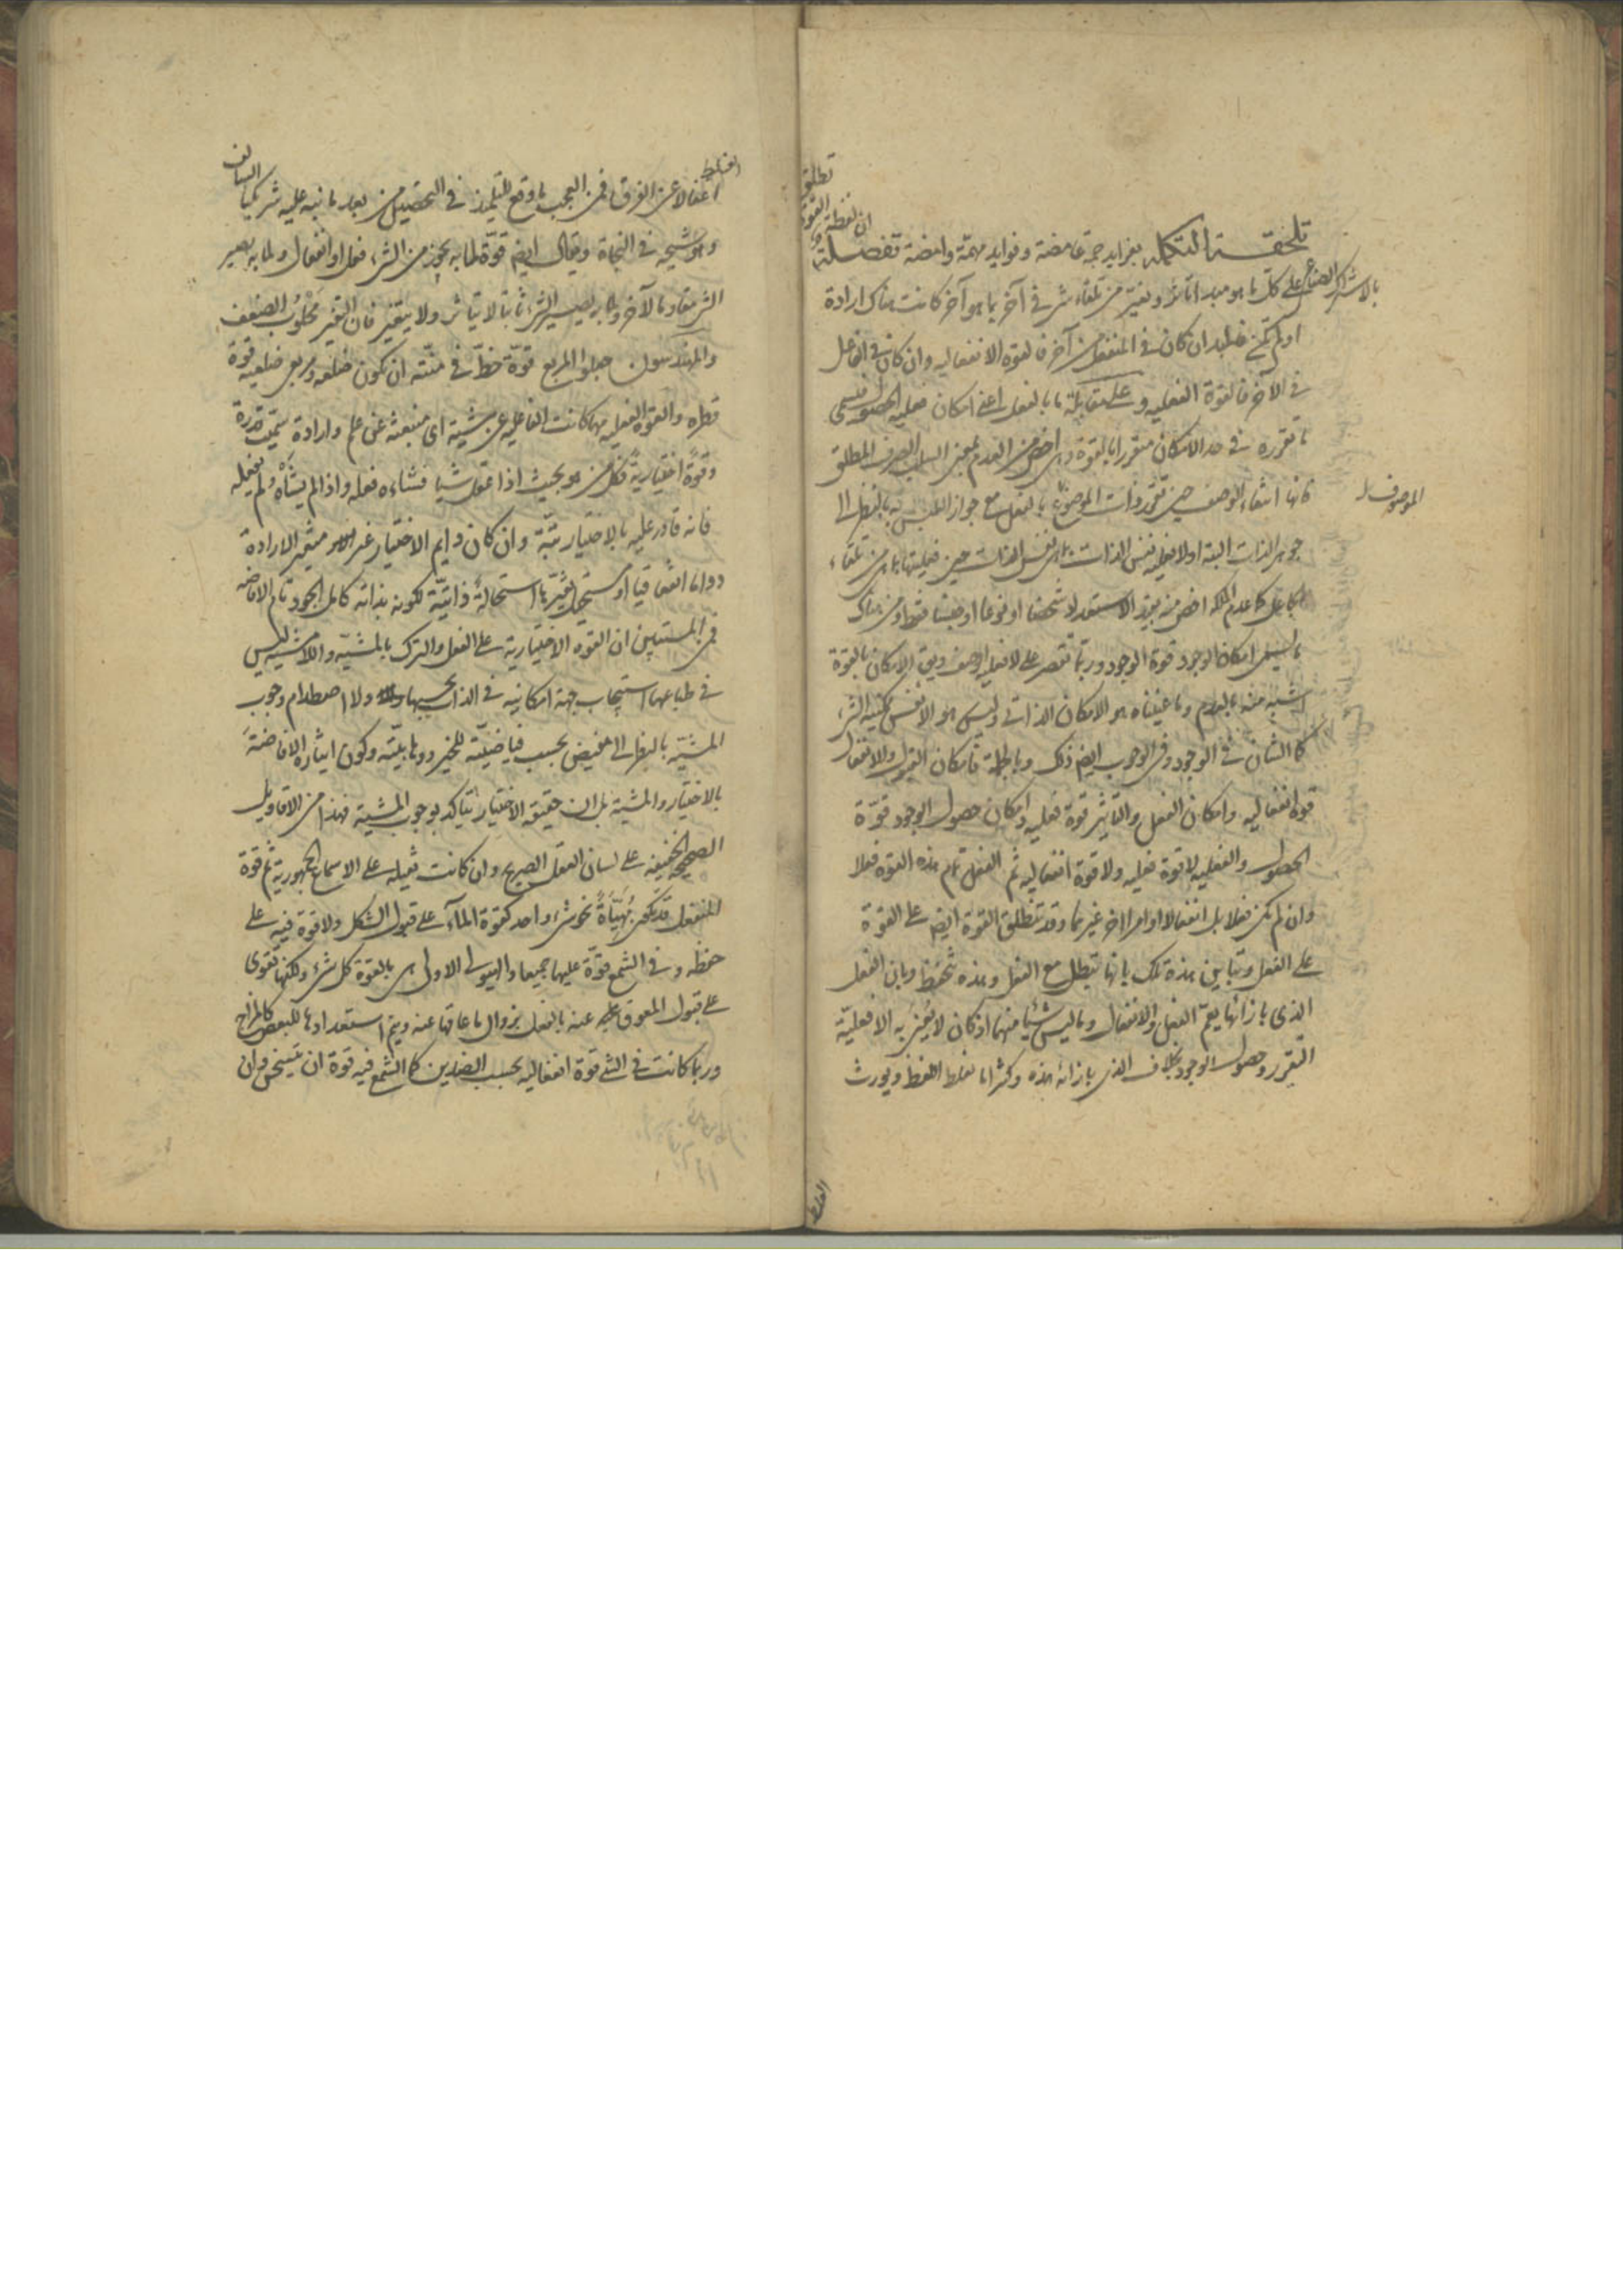 تلحقة التكملة بفرايد جمة غامضة وفوايد مهمة وامضة تفصلة ان لفظة القوة تطلق
بالاشتراك الصناعي على كل ما هو مبدا تاثر وتغير من تلقاء شيء في آخر بما هو آخر كانت هناك ارادة
او لم تكن فالمبدا ان كان في المنفعل من آخر فالقوة الانفعاليه وان كان في الفاعل
في الآخر فالقوة الفعليه وعلى مقابلة ما بالفعل اعني امكان فعليه الحصول فيسمى
ما تقرره في حد الامكان متقررا بالقوة وهي اخص من العدم بمعنى السلب الصرف المطلق
فانها انتفاء الوصف حين تقرر ذات الموضوع بالفعل مع جواز التلبس به بالنظر الى
الموصوف
جوهر الذات البتة او لافعلية نفس الذات بما هي نفس الذات حين فعليتها بها من تلقاء
الجاعل كما عدم الملكه اخص منه بحيز الاستعداد شخصا او نوعا او جنسا فقط ومن هناك
ما يسمى امكان الوجود قوة الوجود وربما تقتصر على لافعلية الوصف ويق الامكان بالقوة
اشبه منه بالعدم وما عنيناه هو الامكان الذاتي وليس هو الا نفس ممكنية الشيء
كما الشان في الوجود وفي الوجوب ايضم ذلك وبالجملة فامكان القبول والانفعال
قوة انفعاليه وامكان الفعل والتاثير قوة فعليه وامكان حصول الوجود قوة
الحصول والفعليه لا قوة فعليه ولا قوة انفعاليه ثم الفعل تمام هذه القوة فعلا
وان لم يكن فعلا بل انفعالا او امرا اخر غيرهما وقد تنطلق القوة ايضم على القوة
على الفعل وتباين هذه تلك بانها تبطل مع الفعل وهذه تنحفظ وبان الفعل
الذي بازائها يعم الفعل والانفعال وما ليس شيئا منهما اذ كان لا يعنى به الا فعلية
التقرر وحصول الوجود بخلاف الذي بازائه هذه وكثيرا ما تغلط اللفظ ويورث
الغلط
الغلط
اغفالا عن الفرق فمن العجب ما وقع لتلميذ في التحصيل من بعد ما نبه عليه شريكنا السالف
وهو شيخه في النجاة ويقال ايضم قوة لما به يجوز من الشيء فعل او انفعال ولما به يصير
الشيء مقاوما لآخر ولما به يصير الشيء ثابتا لا يتاثر ولا يتغير فان التغير مجلوب الضعف
والمهندسون جعلوا المربع قوة خط في منته ان يكون ضلعه ومربعي ضلعيه قوة
قطره والقوة الفعليه مهما كانت الفاعليه عن مشية اي منبعثة عن علم وارادة سميت قدرة
وقوة اختيارية فكل من هو بحيث اذا تمثل شيئا فشاءه فعله واذا لم يشاه لم يفعله
فانه قادر عليه بالاختيار بتة وان كان دايم الاختيار غير متغير الارادة
دواما اتفاقيا او مستحيل تغيرها استحالة ذاتية لكونه بذاته كامل الجود تام الافاضه
فمن المستبين ان القوة الاختيارية على الفعل والترك بالمشية واللامشية ليس
في طباعها استيجاب جهة امكانية في الذات بحسبها ولا اصطدام وجوب
المشية بالنظر الى المفيض بحسب فياضيته للخير ووهابيته وكون ايثاره الافاضة
بالاختيار والمشية بل ان حقيقة الاختيار يتاكد بوجوب المشية فهذا من الاقاويل
الصحيحة الخفيفه على لسان العقل الصريح وان كانت ثقيله على الاسماع الجمهورية ثم قوة
المنفعل قد يكون مهياة نحو شيء واحد كقوة الماء على قبول الشكل ولا قوة فيه على
حفظه وفي الشمع قوة عليهما جميعا والهيولى الاولى هي بالقوة كل شيء ولكنها تقوى
على قبول المعوق عنه بالفعل بزوال ما عاقها عنه ويتم استعدادها للبعض كالمزاج
وربما كانت في الشيء قوة انفعاليه بحسب الضدين كما الشمع فيه قوة ان يتسخن وان